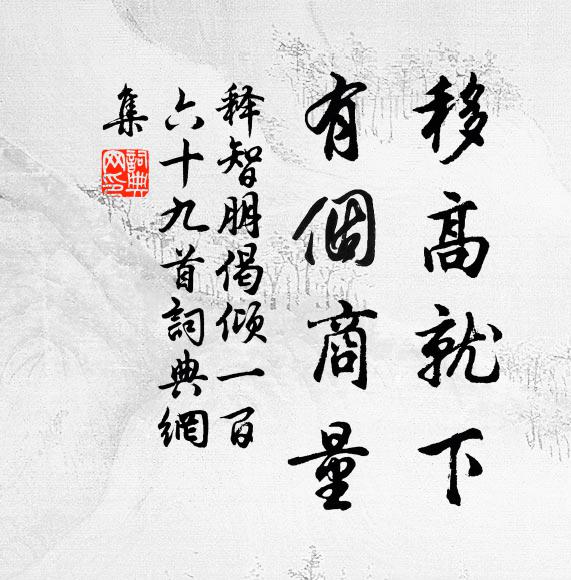 移高就下
有個商量
释智朋偈倾一百
六十九首詞典網
集
詞典
网印